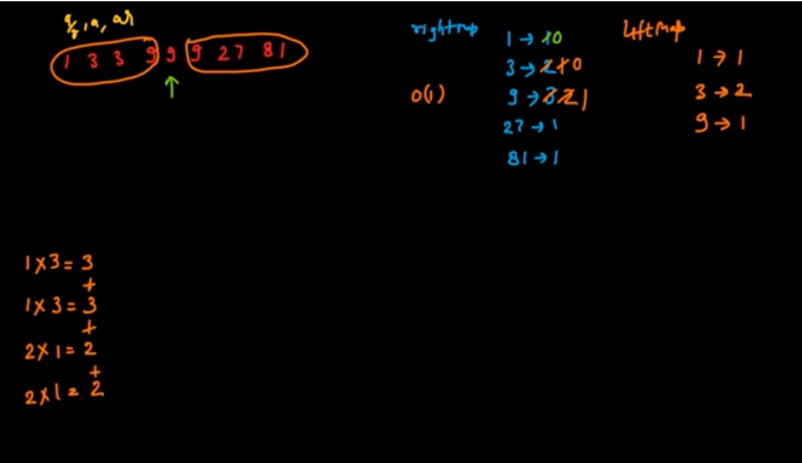 a/r, a, ar
1 3 3 9 9 9 27 81
↑
rightmap
1 → 1 0
3 → 2 1 0
9 → 3 2 1
27 → 1
81 → 1
O(1)
leftMap
1 → 1
3 → 2
9 → 1
1 x 3 = 3
+
1 x 3 = 3
+
2 x 1 = 2
+
2 x 1 = 2